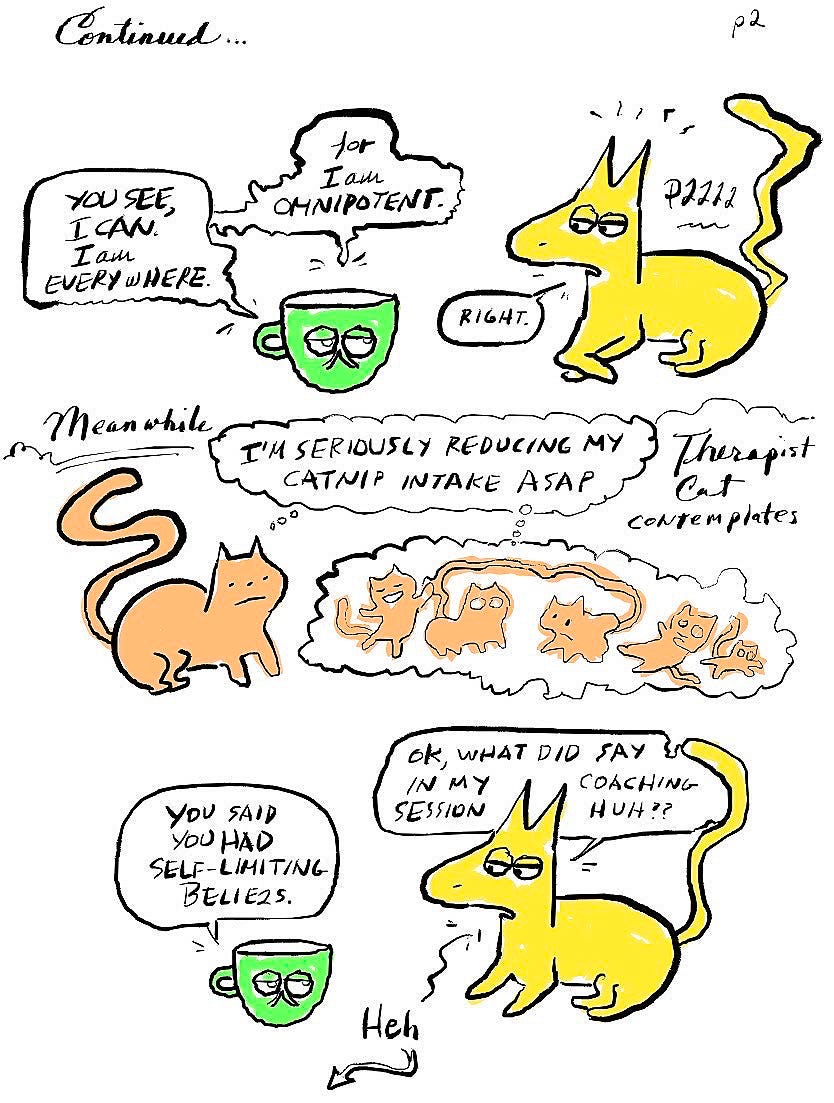 Continued...
p2
YOU SEE,
I CAN.
I am
EVERYWHERE.
for
I am
OMNIPOTENT.
PZZZZ
RIGHT.
Meanwhile
I'M SERIOUSLY REDUCING MY
CATNIP INTAKE ASAP
Therapist
Cat
contemplates
OK, WHAT DID SAY
IN MY COACHING
SESSION HUH??
YOU SAID
YOU HAD
SELF-LIMITING
BELIEFS.
Heh